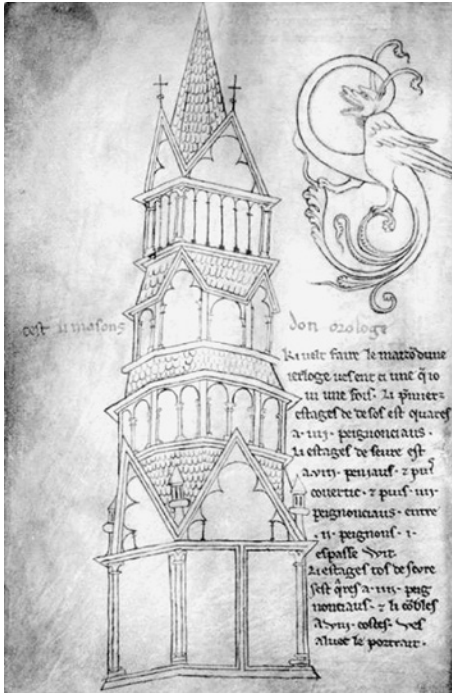 cest li masons don orologe
Ki velt faire le maizo dune
ierloge ves ent ci une q̄ io
vi une fois. Li p̄mier
estages de desos est quares
a .iiii. peignonciaus.
Li estages de seure est
a .viii. peniaus. ⁊ puis
covertic. ⁊ puis .iiii.
peignonciaus. entre
.ii. peignons .i.
espasse wit.
Li estages tos de seure
sest q̄res a .iiii. peig
nonciaus. ⁊ li cōbles
a .viii. costes. Ves
aluec le portrait.